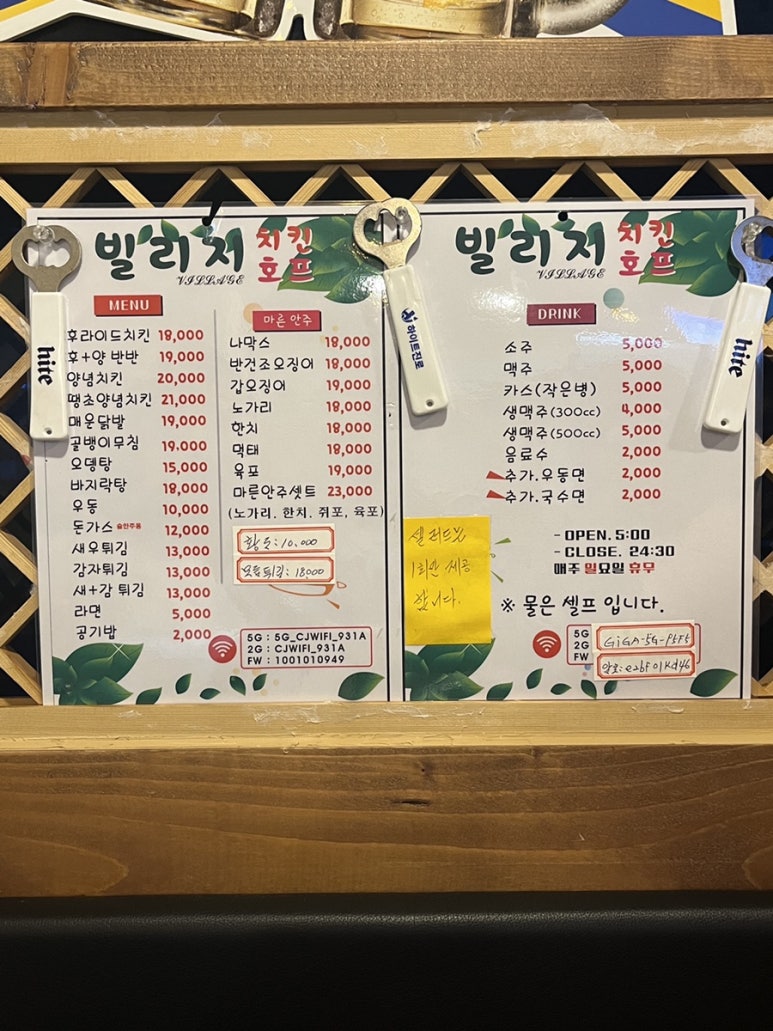 빌리지 치킨
호프
VILLAGE
MENU
후라이드치킨 18,000
후+양 반반 19,000
양념치킨 20,000
땡초양념치킨 21,000
매운닭발 19,000
골뱅이무침 19.000
오뎅탕 15,000
바지락탕 18,000
우동 10,000
돈가스 술안주용 12,000
새우튀김 13,000
감자튀김 13,000
새+감 튀김 13,000
라면 5,000
공기밥 2,000
마른 안주
나막스 18,000
반건조오징어 18,000
갑오징어 19,000
노가리 18,000
한치 18,000
먹태 18,000
육포 19,000
마른안주셋트 23,000
(노가리. 한치. 쥐포, 육포)
황도: 10,000
모듬튀김: 18000
5G : 5G_CJWIFI_931A
2G : CJWIFI_931A
FW : 1001010949
빌리지 치킨
호프
VILLAGE
DRINK
소주 5,000
맥주 5,000
카스(작은병) 5,000
생맥주(300cc) 4,000
생맥주(500cc) 5,000
음료수 2,000
추가.우동면 2,000
추가.국수면 2,000
샐러드는
1회만 제공
합니다.
- OPEN. 5:00
- CLOSE. 24:30
매주 일요일 휴무
※ 물은 셀프 입니다.
5G GiGA-5G-p5F5
2G
FW 암호: e2bf01kd46
hite
하이트진로
hite